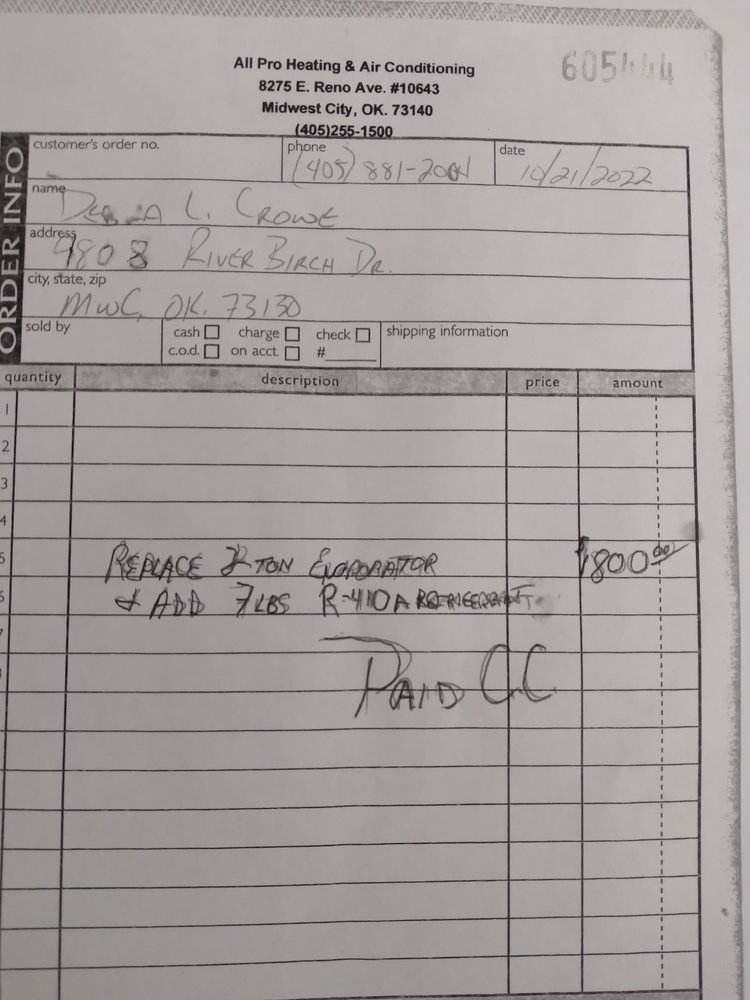 All Pro Heating & Air Conditioning
8275 E. Reno Ave. #10643
Midwest City, OK. 73140
(405)255-1500
ORDER INFO
customer's order no.
phone (405) 881-2004
date 10/21/2022
name L. CROWE
address 9808 RIVER BIRCH DR.
city, state, zip MWC, OK. 73130
sold by
cash charge check
c.o.d. on acct. #
shipping information
quantity description price amount
1
2
3
4
5 REPLACE TON EVAPORATOR 800.00
6 & ADD 7 LBS R-410A REFRIGERANT
7
8 PAID C.C.